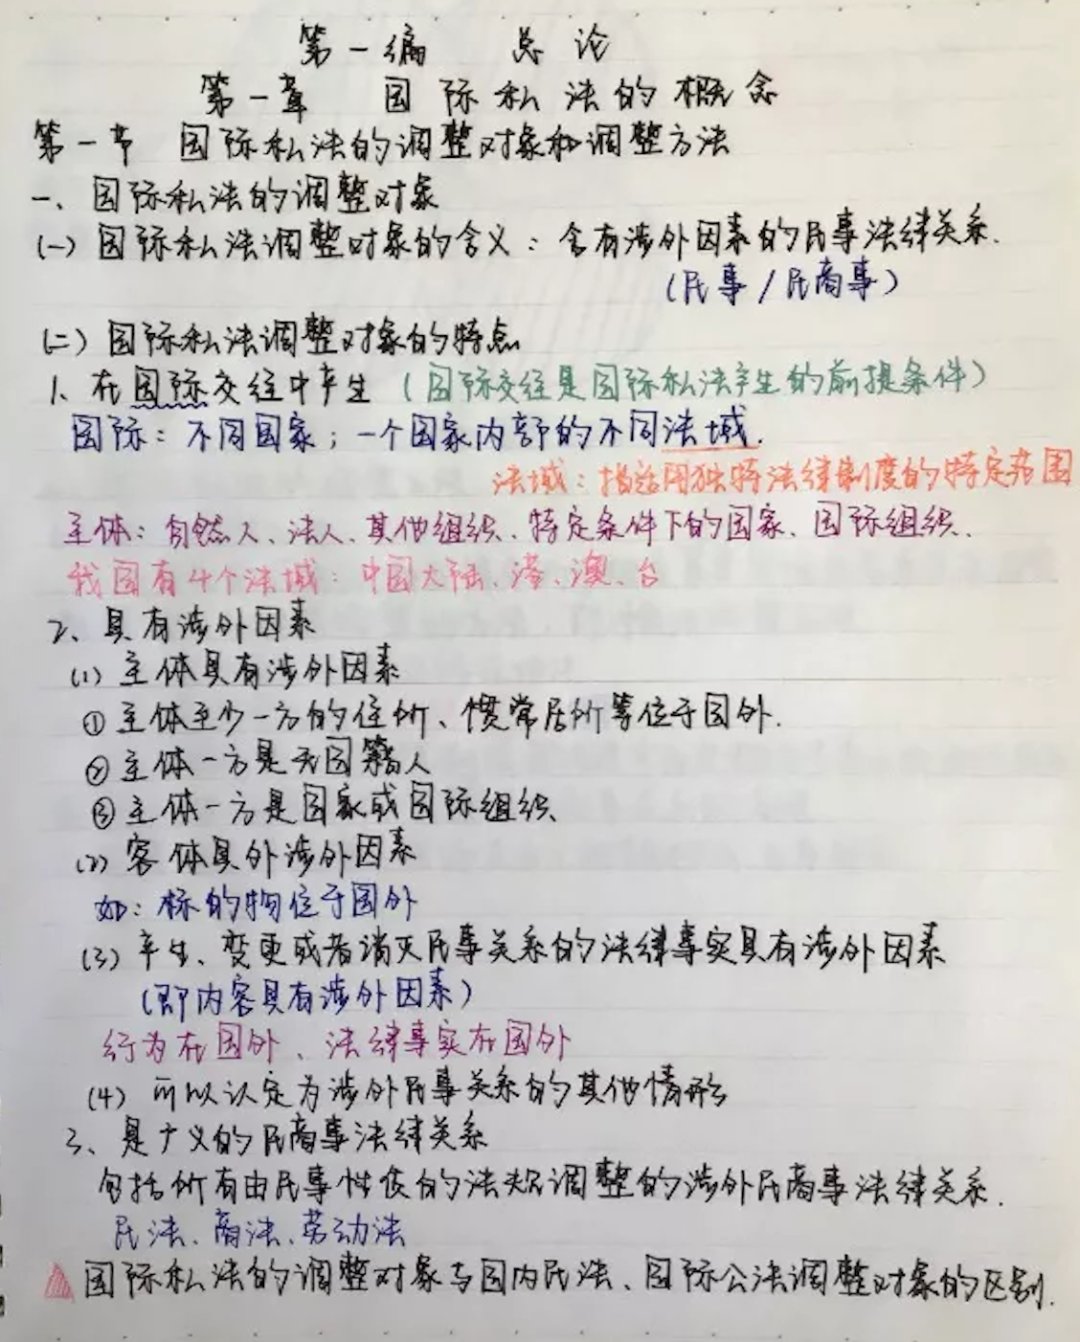 第一编 总论
第一章 国际私法的概念
第一节 国际私法的调整对象和调整方法
一、国际私法的调整对象
(一)国际私法调整对象的含义：含有涉外因素的民事法律关系.
(民事/民商事)
(二)国际私法调整对象的特点
1、在国际交往中产生 (国际交往是国际私法产生的前提条件)
国际：不同国家；一个国家内部的不同法域.
法域：指适用独特法律制度的特定范围
主体：自然人、法人、其他组织、特定条件下的国家、国际组织.
我国有4个法域：中国大陆、港、澳、台
2、具有涉外因素
(1)主体具有涉外因素
①主体至少一方的住所、惯常居所等位于国外.
②主体一方是无国籍人
③主体一方是国家或国际组织
(2)客体具外涉外因素
如：标的物位于国外
(3)产生、变更或者消灭民事关系的法律事实具有涉外因素
(即内容具有涉外因素)
行为在国外、法律事实在国外
(4)可以认定为涉外民事关系的其他情形
3、是广义的民商事法律关系
包括所有由民事性质的法规调整的涉外民商事法律关系.
民法、商法、劳动法
国际私法的调整对象与国内民法、国际公法调整对象的区别.